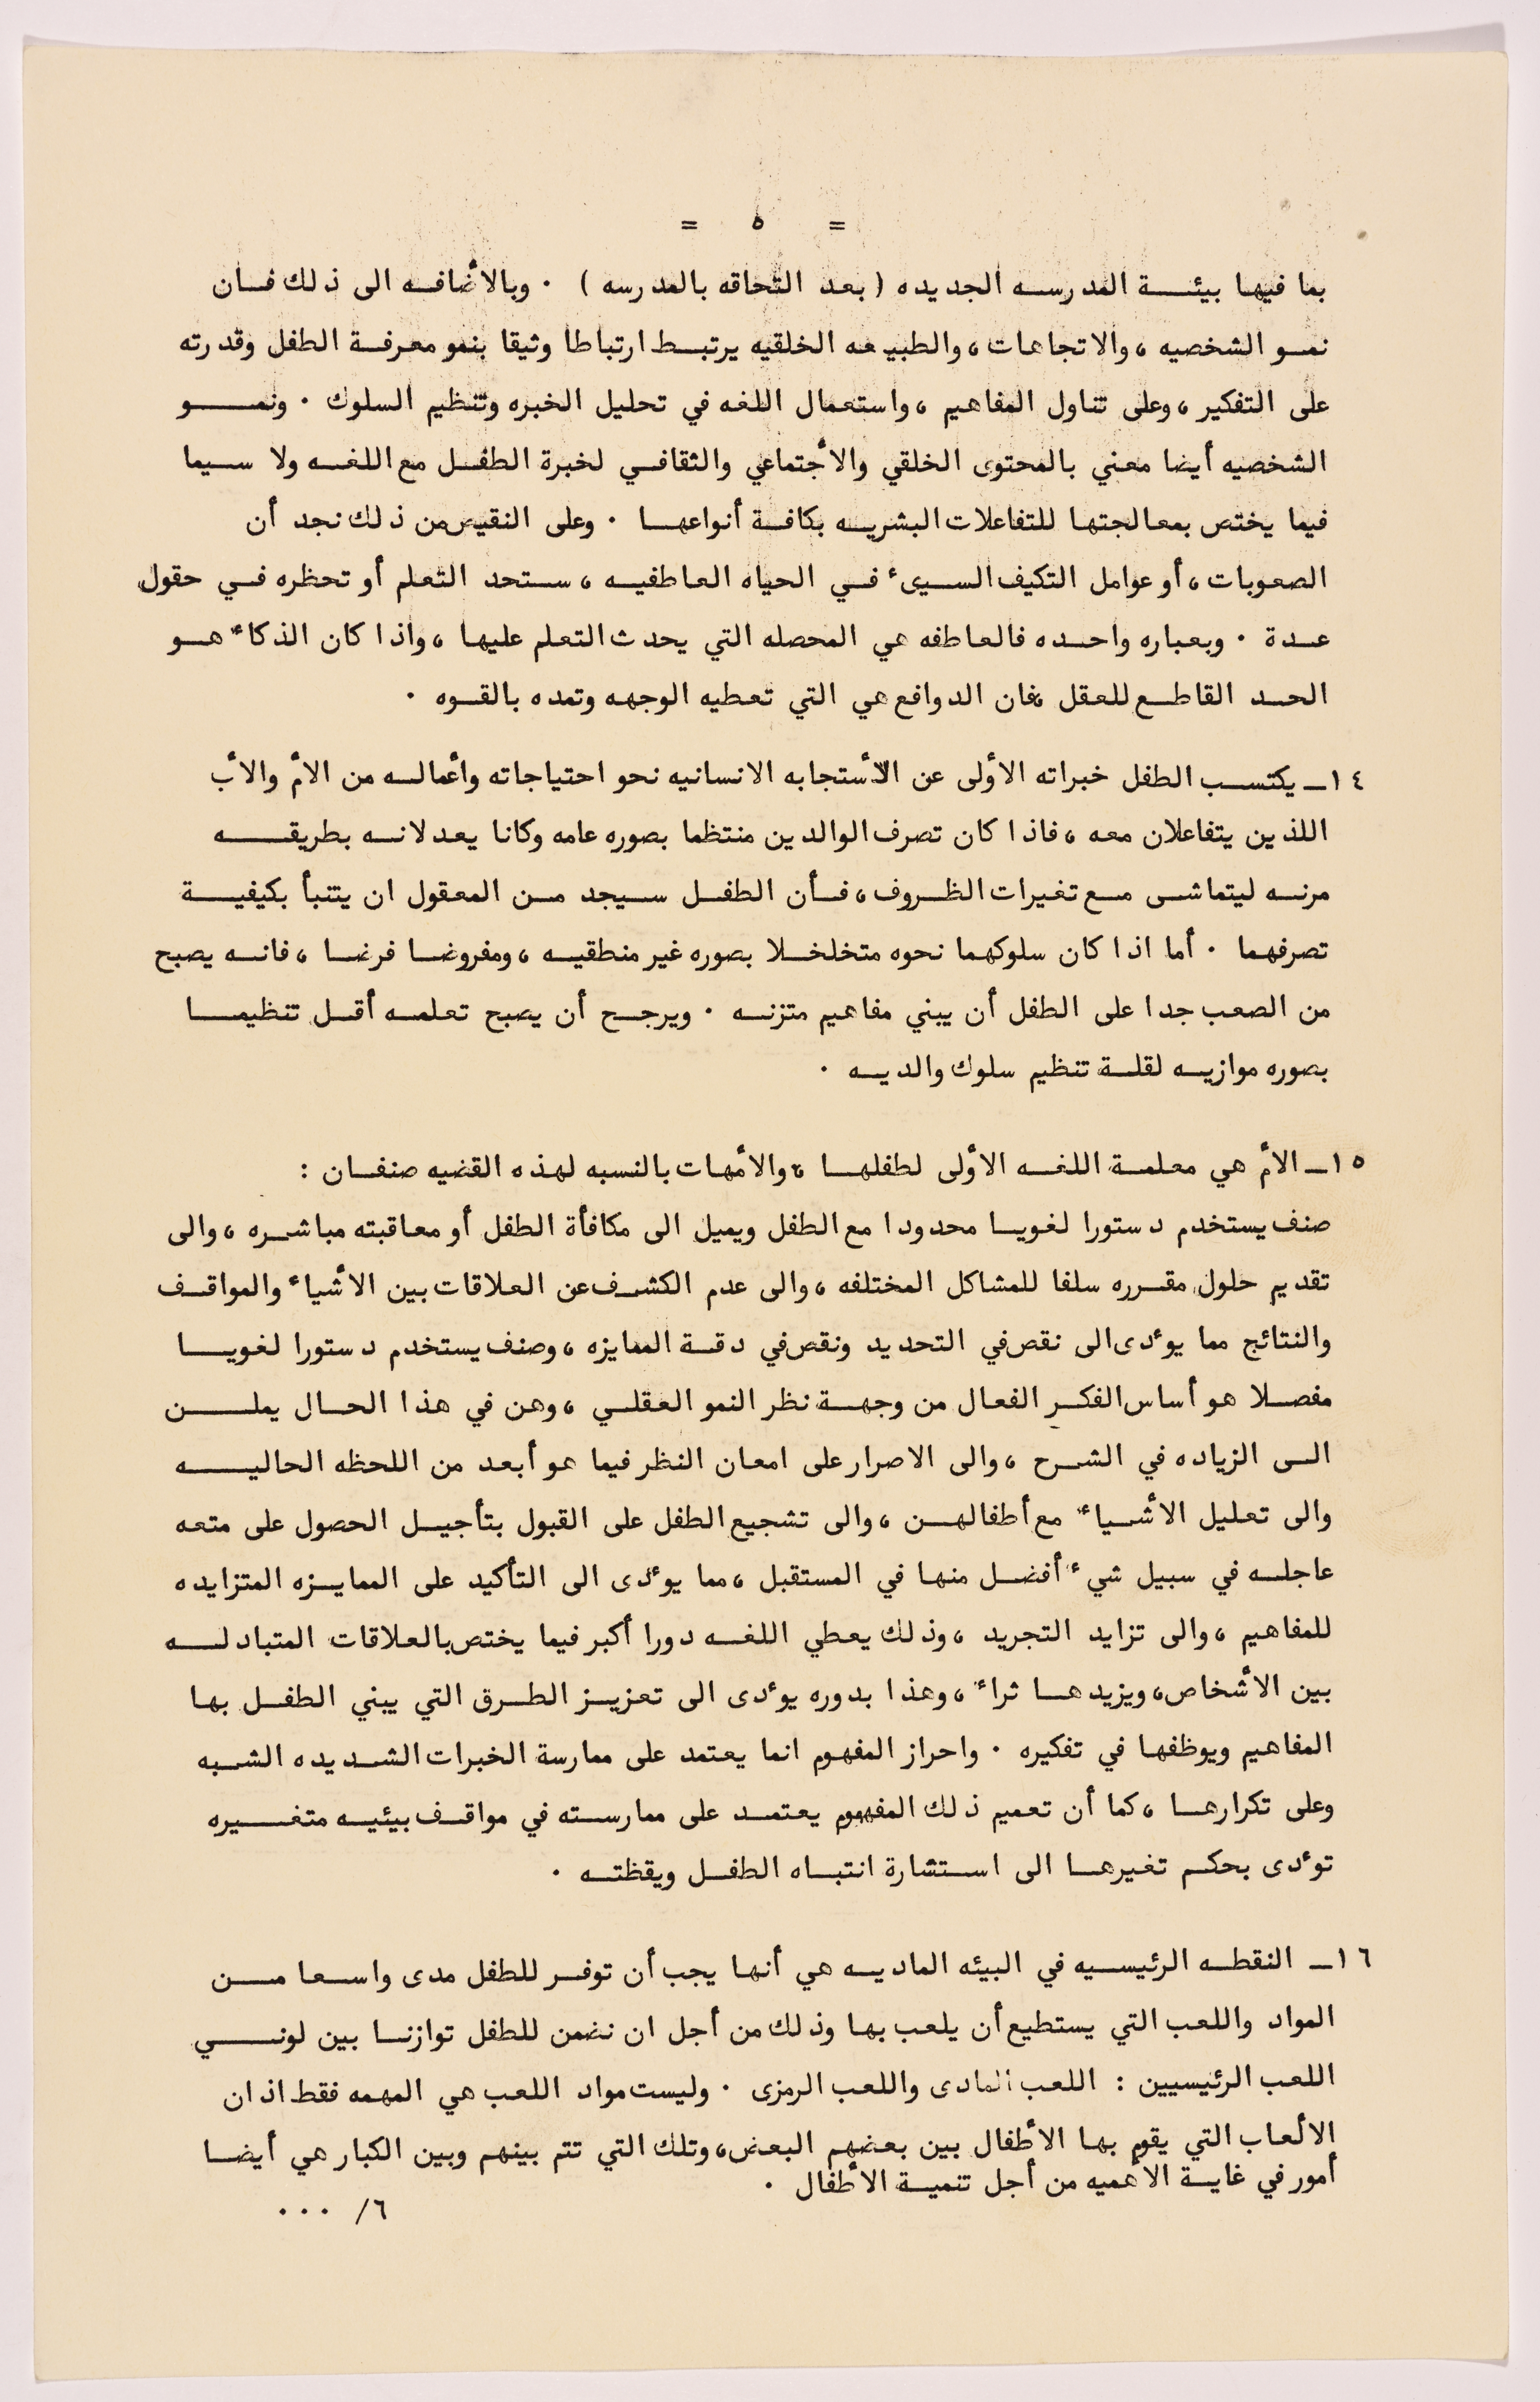 = ٥ =
بما فيها بيئة المدرسه الجديده ( بعد التحاقه بالمدرسه ) . وبالأضافه الى ذلك فان
نمو الشخصيه ، والاتجاهات ، والطبيعه الخلقيه يرتبط ارتباطا وثيقا بنمو معرفة الطفل وقدرته
على التفكير ، وعلى تناول المفاهيم ، واستعمال اللغه في تحليل الخبره وتنظيم السلوك . ونمو
الشخصيه أيضا معني بالمحتوى الخلقي والأجتماعي والثقافي لخبرة الطفل مع اللغه ولا سيما
فيما يختص بمعالجتها للتفاعلات البشريه بكافة أنواعها . وعلى النقيض من ذلك نجد أن
الصعوبات ، أو عوامل التكيف السيىء في الحياه العاطفيه ، ستحد التعلم أو تحظره في حقول
عدة . وبعباره واحده فالعاطفه هي المحصله التي يحدث التعلم عليها ، واذا كان الذكاء هو
الحد القاطع للعقل ، فان الدوافع هي التي تعطيه الوجهه وتمده بالقوه .
١٤ـ يكتسب الطفل خبراته الأولى عن الأستجابه الانسانيه نحو احتياجاته وأعماله من الأم والأب
اللذين يتفاعلان معه ، فاذا كان تصرف الوالدين منتظما بصوره عامه وكانا يعدلانه بطريقه
مرنه ليتماشى مع تغيرات الظروف ، فأن الطفل سيجد من المعقول ان يتنبأ بكيفية
تصرفهما . أما اذا كان سلوكهما نحوه متخلخلا بصوره غير منطقيه ، ومفروضا فرضا ، فانه يصبح
من الصعب جدا على الطفل أن يبني مفاهيم متزنه . ويرجح أن يصبح تعلمه أقل تنظيما
بصوره موازيه لقلة تنظيم سلوك والديه .
١٥ـ الأم هي معلمة اللغه الأولى لطفلها ، والأمهات بالنسبه لهذه القضيه صنفان :
صنف يستخدم دستورا لغويا محدودا مع الطفل ويميل الى مكافأة الطفل أو معاقبته مباشره ، والى
تقديم حلول مقرره سلفا للمشاكل المختلفه ، والى عدم الكشف عن العلاقات بين الأشياء والمواقف
والنتائج مما يوءدى الى نقص في التحديد ونقص في دقة الممايزه ، وصنف يستخدم دستورا لغويا
مفصلا هو أساس الفكر الفعال من وجهة نظر النمو العقلي ، وهن في هذا الحال يملن
الى الزياده في الشرح ، والى الاصرار على امعان النظر فيما هو أبعد من اللحظه الحاليه
والى تعليل الأشياء مع أطفالهن ، والى تشجيع الطفل على القبول بتأجيل الحصول على متعه
عاجله في سبيل شيء أفضل منها في المستقبل ، مما يوءدى الى التأكيد على الممايزه المتزايده
للمفاهيم ، والى تزايد التجريد ، وذلك يعطي اللغه دورا أكبر فيما يختص بالعلاقات المتبادله
بين الأشخاص ، ويزيدها ثراء ، وهذا بدوره يوءدى الى تعزيز الطرق التي يبني الطفل بها
المفاهيم ويوظفها في تفكيره . واحراز المفهوم انما يعتمد على ممارسة الخبرات الشديده الشبه
وعلى تكرارها ، كما أن تعميم ذلك المفهوم يعتمد على ممارسته في مواقف بيئيه متغيره
توءدى بحكم تغيرها الى استشارة انتباه الطفل ويقظته .
١٦ـ النقطه الرئيسيه في البيئه الماديه هي أنها يجب أن توفر للطفل مدى واسعا من
المواد واللعب التي يستطيع أن يلعب بها وذلك من أجل ان نضمن للطفل توازنا بين لوني
اللعب الرئيسيين : اللعب المادى واللعب الرمزى . وليست مواد اللعب هي المهمه فقط اذ ان
الألعاب التي يقوم بها الأطفال بين بعضهم البعض ، وتلك التي تتم بينهم وبين الكبار هي أيضا
أمور في غاية الأهميه من أجل تنمية الأطفال .
٦/ ...